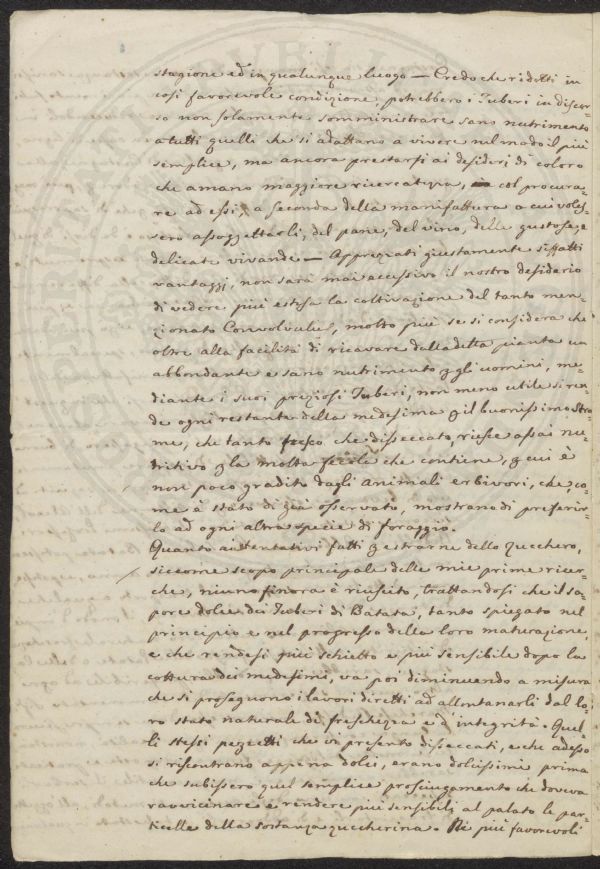 stagione ed in qualunque luogo — Credo che ridotti in
così favorevole condizione, potrebbero i Tuberi in discor-
so non solamente somministrare sano nutrimento
a tutti quelli che si adattano a vivere nel modo il più
semplice, ma ancora prestarsi ai desiderj di coloro
che amano maggiore ricercatezza, col procura-
re ad essi, a seconda della manifattura a cui voles-
sero assoggettarli, del pane, del vino, delle gustose, e
delicate vivande — Apprezzati giustamente siffatti
vantaggj, non sarà mai eccessivo il nostro desiderio
di vedere più estesa la coltivazione del tanto men-
zionato Convolvulus, molto più se si considera che
oltre alla facilità di ricavare dalla detta pianta un
abbondante e sano nutrimento p gli uomini, me-
diante i suoi preziosi Tuberi, non meno utile si ren-
de ogni restante della medesima p il buonissimo stra-
me, che tanto fresco che disseccato, riesce assai nu-
tritivo p la molta fecola che contiene, p cui è
non poco gradito dagli animali erbivori, che, co-
me è stato di già osservato, mostrano di preferir-
lo ad ogni altra specie di foraggio.
Quanto ai tentativi fatti p estrarne dello zucchero,
siccome scopo principale delle mie prime ricer-
che, niuno finora è riuscito, trattandosi che il sa-
pore dolce dei Tuberi di Batata, tanto spiegato nel
principio e nel progresso della loro maturazione,
e che rendesi più schietto e più sensibile dopo la
cottura dei medesimi, va poi diminuendo a misura
che si proseguono i lavori diretti ad allontanarli dal lo-
ro stato naturale di freschezza e d'integrità. Quel-
li stessi pezzetti che vi presento disseccati, e che adesso
si riscontrano appena dolci, erano dolcissimi prima
che subissero quel semplice prosciugamento che doveva
ravvicinare e rendere più sensibili al palato le par-
ticelle della sostanza zuccherina. Nè più favorevoli